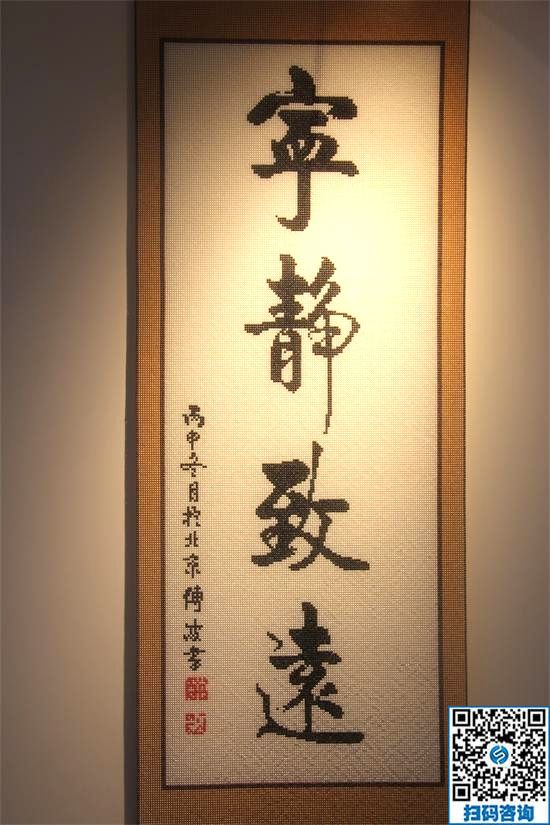 寧靜致遠
丙申冬月於北京傳波書
扫码咨询